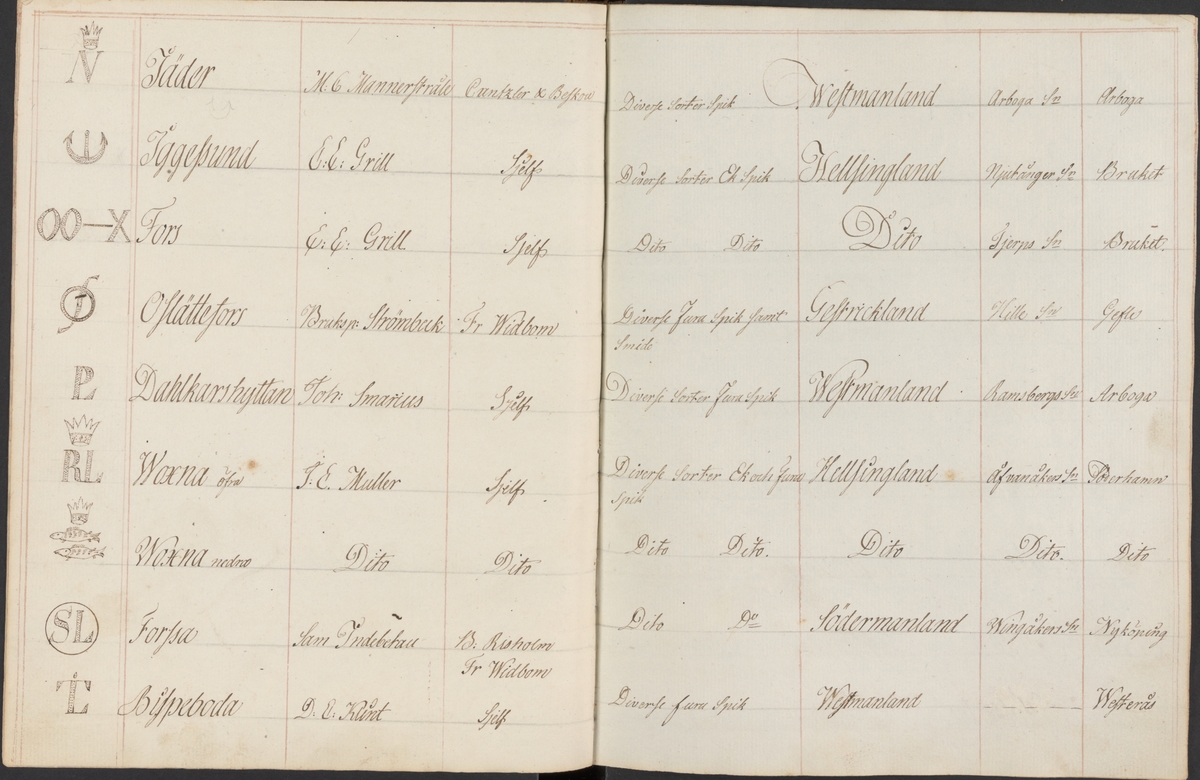 N Jäder M. C Mannerstråle Cantzler & Beskou Diverse Sorter Spik Westmanland Arboga Sn Arboga
Iggesund E: E: Grill Sjelf Diverse Sorter Ek Spik Hellsingland Njutånger Sn Bruket
OO—X Fors E: E: Grill Sjelf Dito Dito Dito Jjerps Sn Bruket.
Oslättefors Brukspr: Strömbeck Fr Widbom Diverse Furu Spik samt Gestrickland Hille Sn Gefle
Smide
P Dahlkarshyttan Joh: Smarcus Sjelf Diverse Sorter Furu Spik Westmanland Ramsbergs Sn Arboga
RL Woxna öfra J. E. Muller Sjelf. Diverse Sorter Ek och Furu Hellsingland Åfvanåkers Sn Söderhamn
Spik
Woxna nedra Dito Dito Dito Dito. Dito Dito. Dito
SL Forssa Sam Indebetou B: Risholm Dito Do Södermanland Wingåkers Sn Nyköping
Fr Widbom
T Bispeboda D. E. Kånt Sjelf Diverse furu Spik Westmanland Westerås